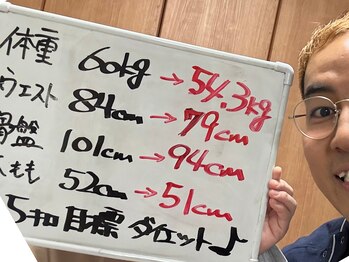 体重 60kg→54.3kg
ウエスト 84cm→79cm
骨盤 101cm→94cm
太もも 52cm→51cm
5キロ目標 ダイエット♪